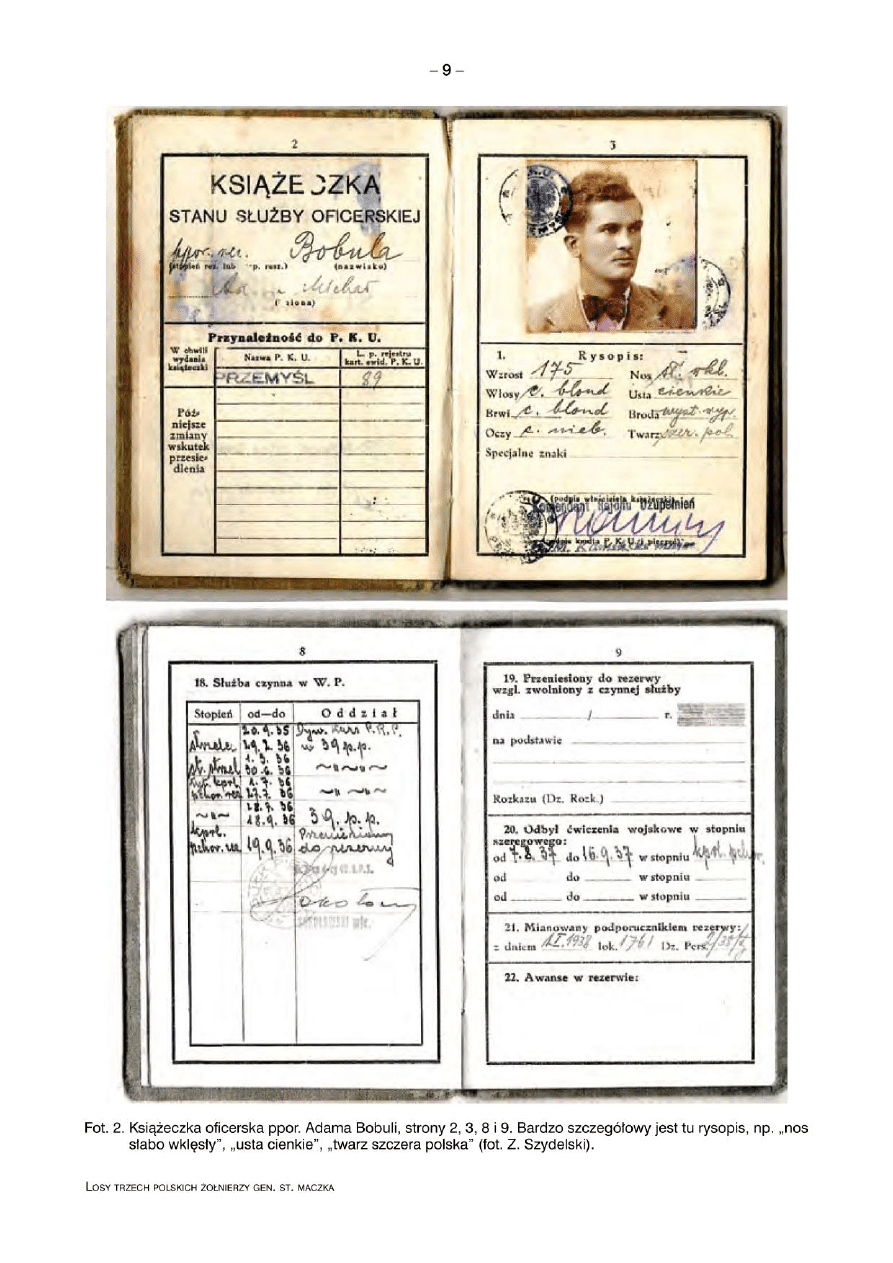 – 9 –
2
KSIĄŻECZKA
STANU SŁUŻBY OFICERSKIEJ
ppor. rez. Bobula
(stopień rez. lub p. rusz.) (nazwisko)
Michał
Przynależność do P. K. U.
W chwili wydania książeczki
Nazwa P. K. U.
L. p. rejestru kart. ewid. P. K. U.
PRZEMYŚL 89
Późniejsze
zmiany
wskutek
przesiedlenia
3
1. Rysopis:
Wzrost 175 Nos sł. wkl.
Włosy c. blond Usta cienkie
Brwi c. blond Broda wyst. wyp.
Oczy c. nieb. Twarz szcz. pol.
Specjalne znaki
(podpis właściciela książeczki)
Komendant Rejonu Uzupełnień
8
18. Służba czynna w W. P.
Stopień od—do Oddział
20.9.35 Dyw. Kurs P.R.P.
strzelec 29.2.36 w 39 p.p.
1. 3. 36
st. strzel. 30.6.36 ~"~"~
1. 7. 36
pchor. rez 17.7. 36 ~"~"~
18.7. 36
~"~ 18.9.36 39. p. p.
kprl. Przeniesiony
pchor. rez 19.9.36 do rezerwy
9
19. Przeniesiony do rezerwy
wzgl. zwolniony z czynnej służby
dnia / r.
na podstawie
Rozkazu (Dz. Rozk.)
20. Odbył ćwiczenia wojskowe w stopniu
szeregowego:
od 7.8.37 do 16.9.37 w stopniu kprl. pchor.
od do w stopniu
od do w stopniu
21. Mianowany podporucznikiem rezerwy:
z dniem 1.I.1938 lok. 1761 Dz. Pers.
22. Awanse w rezerwie:
Fot. 2. Książeczka oficerska ppor. Adama Bobuli, strony 2, 3, 8 i 9. Bardzo szczegółowy jest tu rysopis, np. „nos
słabo wklęsły”, „usta cienkie”, „twarz szczera polska” (fot. Z. Szydelski).
LOSY TRZECH POLSKICH ŻOŁNIERZY GEN. ST. MACZKA